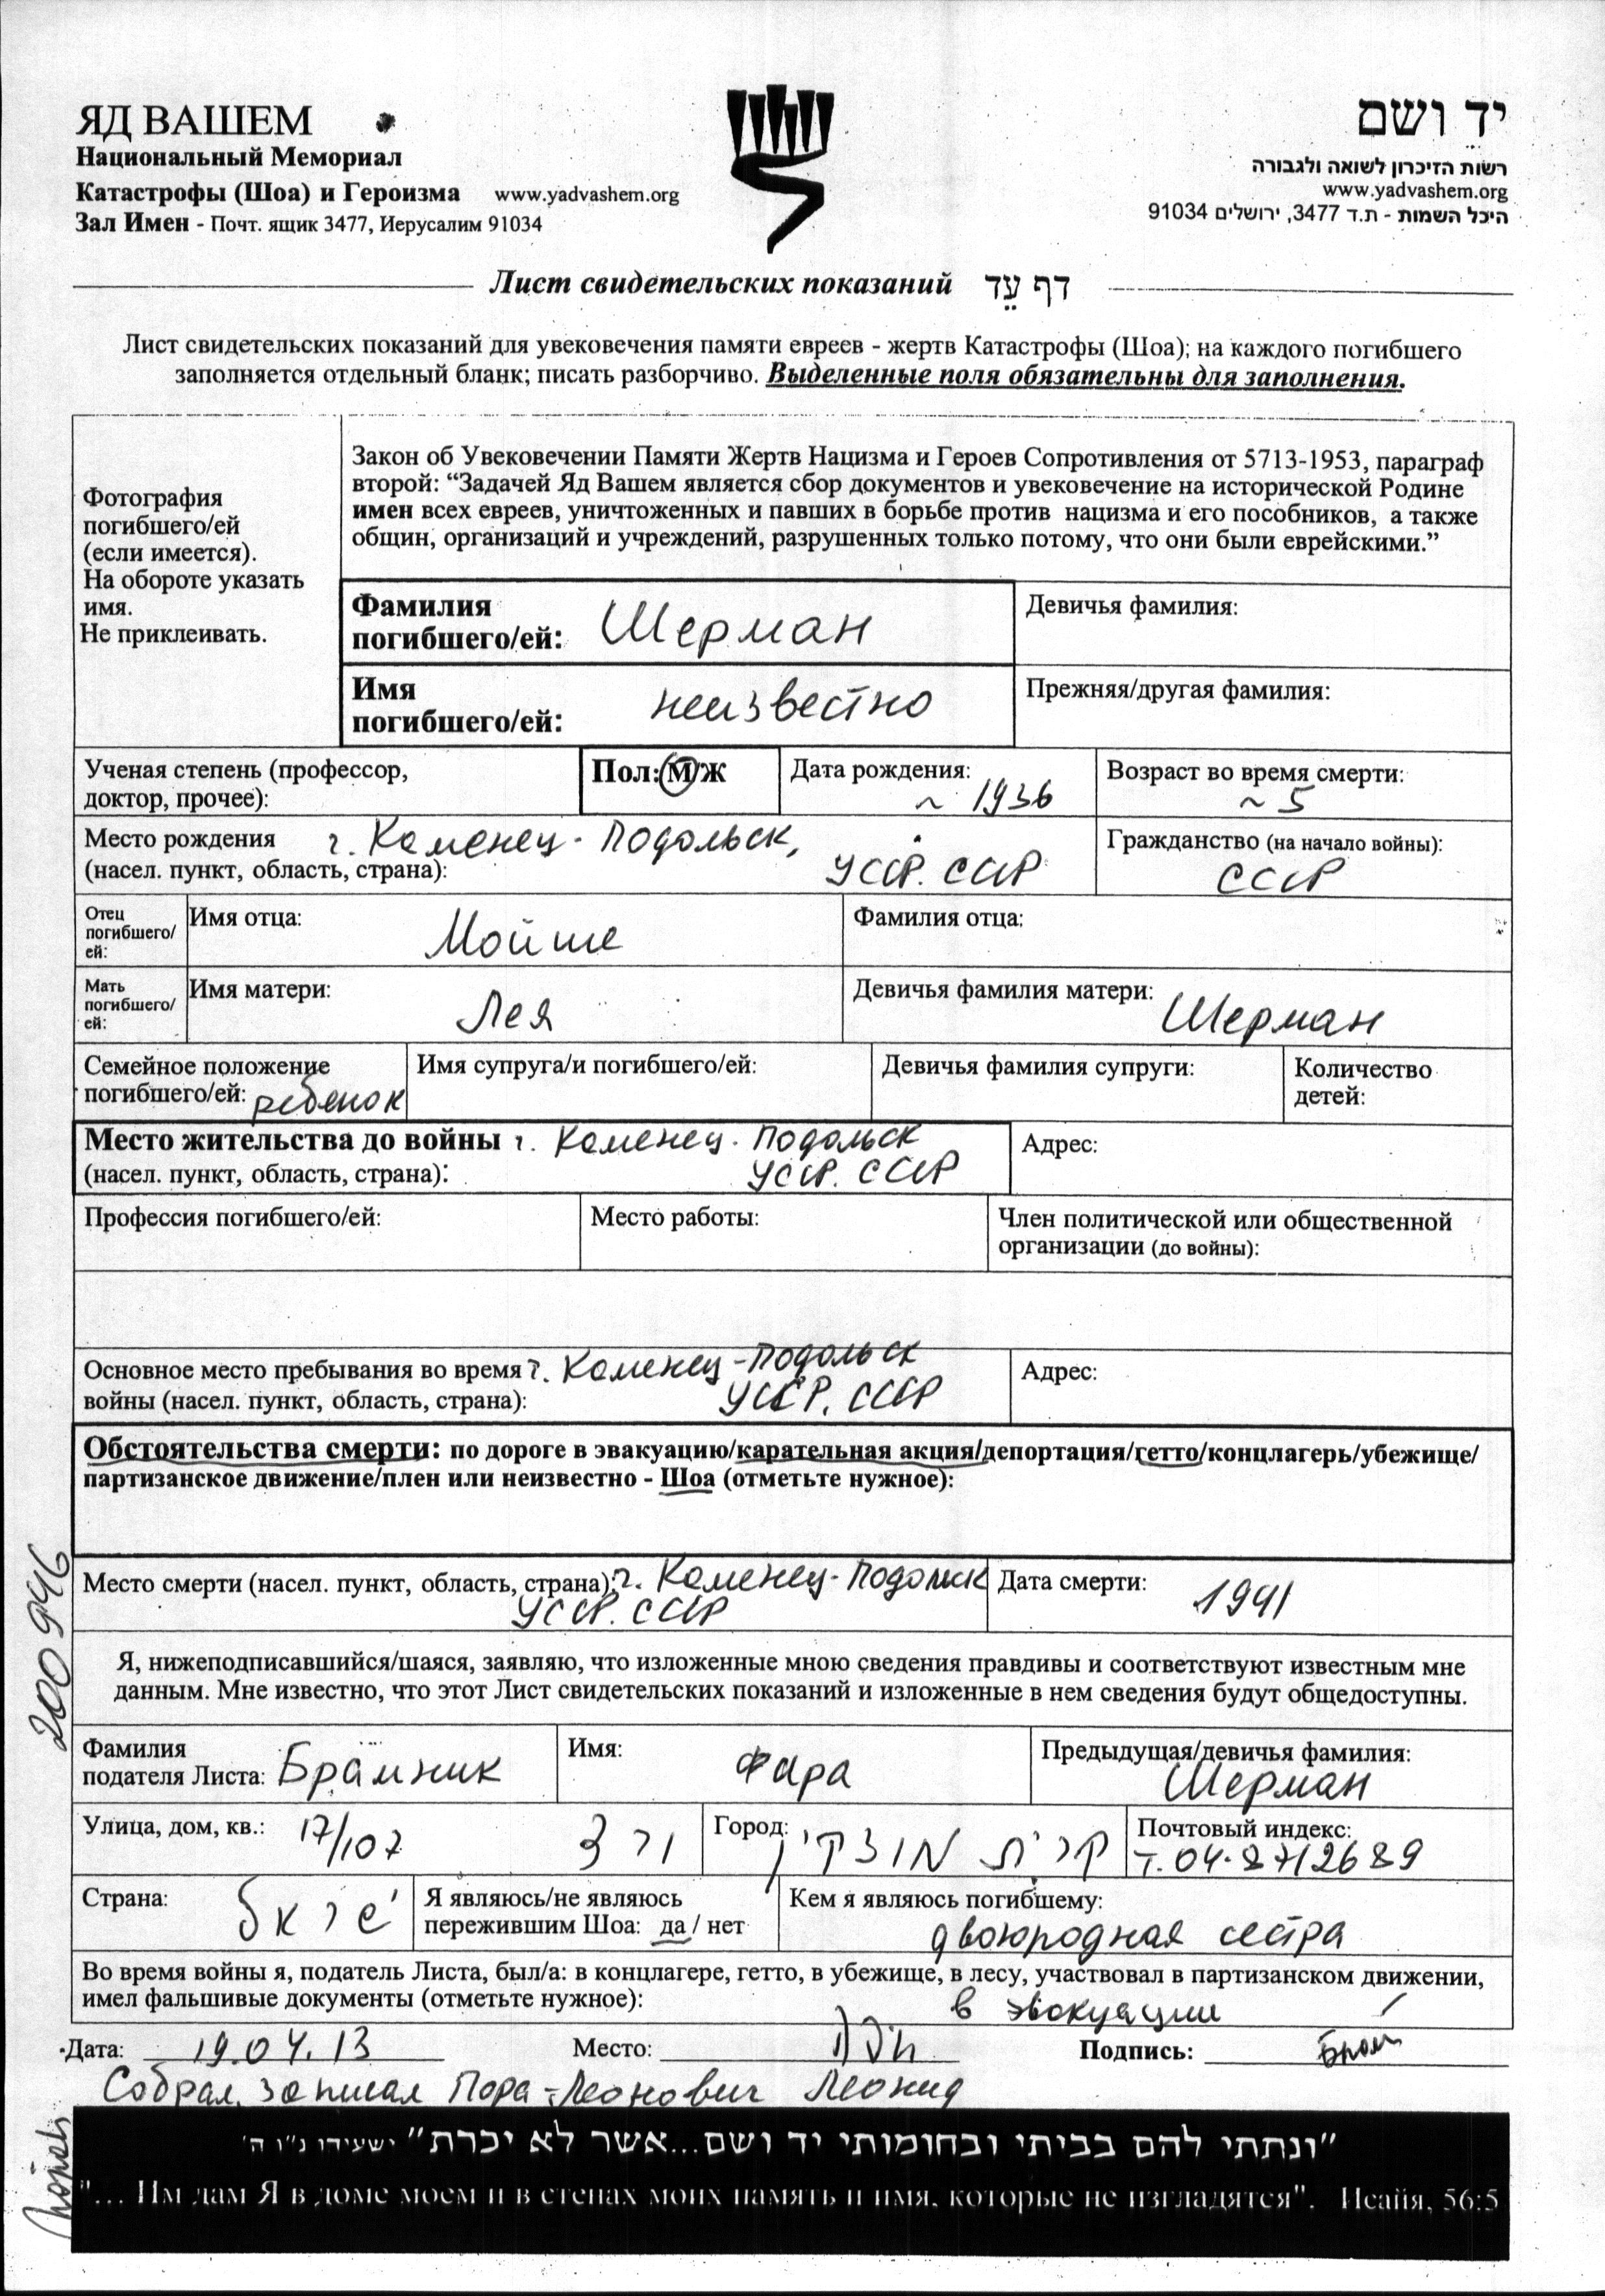 ЯД ВАШЕМ
Национальный Мемориал
Катастрофы (Шоа) и Героизма www.yadvashem.org
Зал Имен - Почт. ящик 3477, Иерусалим 91034
יד ושם
רשות הזיכרון לשואה ולגבורה
www.yadvashem.org
היכל השמות - ת.ד 3477, ירושלים 91034
Лист свидетельских показаний דף עֵד
Лист свидетельских показаний для увековечения памяти евреев - жертв Катастрофы (Шоа); на каждого погибшего
заполняется отдельный бланк; писать разборчиво. Выделенные поля обязательны для заполнения.
Фотография
погибшего/ей
(если имеется).
На обороте указать
имя.
Не приклеивать.
Закон об Увековечении Памяти Жертв Нацизма и Героев Сопротивления от 5713-1953, параграф
второй: “Задачей Яд Вашем является сбор документов и увековечение на исторической Родине
имен всех евреев, уничтоженных и павших в борьбе против нацизма и его пособников, а также
общин, организаций и учреждений, разрушенных только потому, что они были еврейскими.”
Фамилия
погибшего/ей: Шерман
Девичья фамилия:
Имя
погибшего/ей: неизвестно
Прежняя/другая фамилия:
Ученая степень (профессор,
доктор, прочее):
Пол: М/Ж
Дата рождения:
~ 1936
Возраст во время смерти:
~ 5
Место рождения г. Каменец-Подольск,
(насел. пункт, область, страна): УССР. СССР
Гражданство (на начало войны):
СССР
Отец
погибшего/
ей:
Имя отца: Мойше
Фамилия отца:
Мать
погибшего/
ей:
Имя матери: Лея
Девичья фамилия матери: Шерман
Семейное положение
погибшего/ей: ребенок
Имя супруга/и погибшего/ей:
Девичья фамилия супруги:
Количество
детей:
Место жительства до войны г. Каменец-Подольск
(насел. пункт, область, страна): УССР. СССР
Адрес:
Профессия погибшего/ей:
Место работы:
Член политической или общественной
организации (до войны):
Основное место пребывания во время г. Каменец-Подольск
войны (насел. пункт, область, страна): УССР. СССР
Адрес:
Обстоятельства смерти: по дороге в эвакуацию/карательная акция/депортация/гетто/концлагерь/убежище/
партизанское движение/плен или неизвестно - Шоа (отметьте нужное):
Место смерти (насел. пункт, область, страна): г. Каменец-Подольск
УССР. СССР
Дата смерти: 1941
200946
Я, нижеподписавшийся/шаяся, заявляю, что изложенные мною сведения правдивы и соответствуют известным мне
данным. Мне известно, что этот Лист свидетельских показаний и изложенные в нем сведения будут общедоступны.
Фамилия
подателя Листа: Брамник
Имя: Фара
Предыдущая/девичья фамилия:
Шерман
Улица, дом, кв.: 17/107 ורד
Город: קרית מוצקין
Почтовый индекс:
т. 04-8712689
Страна: ישראל
Я являюсь/не являюсь
пережившим Шоа: да / нет
Кем я являюсь погибшему:
двоюродная сестра
Во время войны я, податель Листа, был/а: в концлагере, гетто, в убежище, в лесу, участвовал в партизанском движении,
имел фальшивые документы (отметьте нужное): в эвакуации
Дата: 19.04.13 Место: Подпись: Брам
Собрал, записал Пора-Леонович Леонид
"ונתתי להם בביתי ובחומותי יד ושם...אשר לא יכרת" ישעיהו נ"ו ה'
"... Им дам Я в доме моем и в стенах моих память и имя, которые не изгладятся". Исайя, 56:5